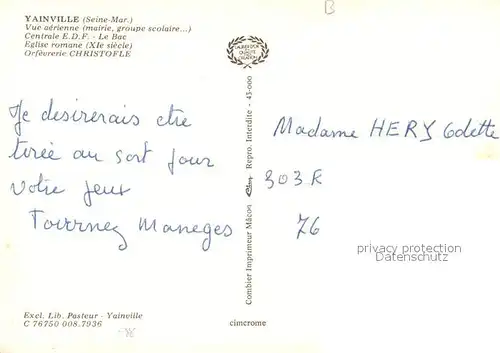 YAINVILLE (Seine-Mar.)
Vue aérienne (mairie, groupe scolaire...)
Centrale E.D.F. - Le Bac
Eglise romane (XIe siècle)
Orfèvrerie CHRISTOFLE
B
Je desirerais etre
tirée au sort pour
votre jeux
Tournez Maneges
Combier Imprimeur Mâcon Repro. Interdite - 43-000
Madame HERY Odette
303 R
76
privacy protection
Datenschutz
Excl. Lib. Pasteur - Yainville
C 76750 008.7936
cimcrome